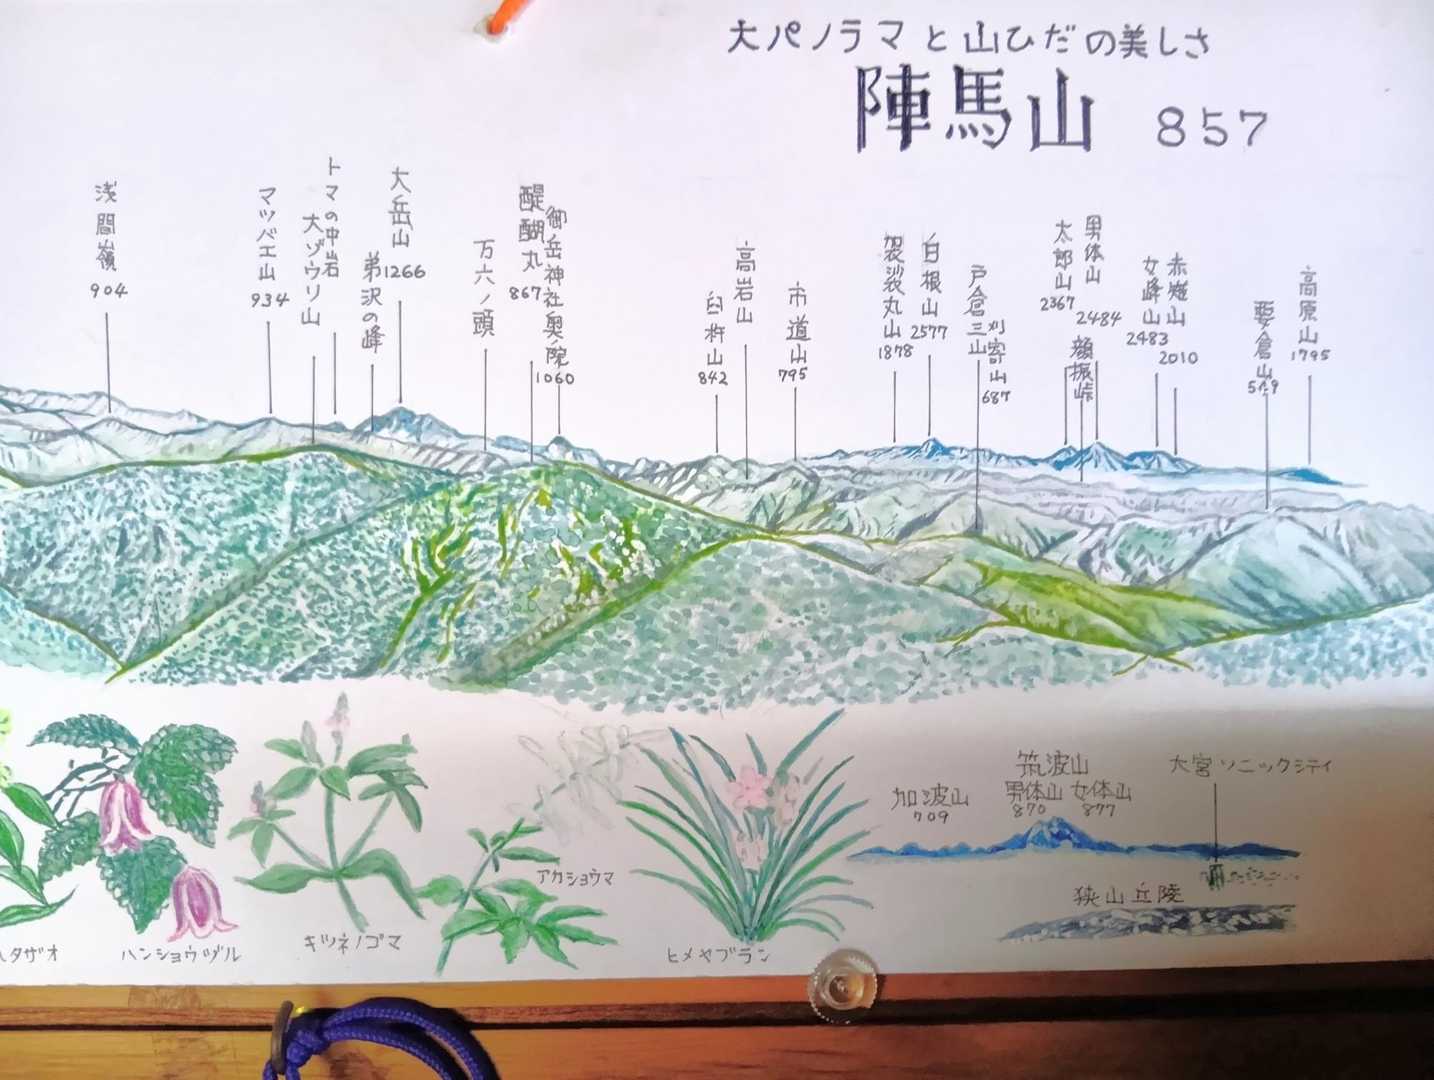 大パノラマと山ひだの美しさ
陣馬山 857
浅間嶺
904
マツバエ山
934
大ゾウリ山
トマの中岩
弟沢の峰
大岳山
1266
万六ノ頭
醍醐丸
867
御岳神社奥ノ院
1060
臼杵山
842
高岩山
市道山
795
袈裟丸山
1878
白根山
2577
戸倉三山
刈寄山
687
太郎山
2367
男体山
2484
顔振峠
女峰山
2483
赤薙山
2010
要倉山
549
高原山
1795
加波山
709
筑波山
男体山 女体山
870 877
大宮ソニックシティ
狭山丘陵
タザオ
ハンショウヅル
キツネノゴマ
アカショウマ
ヒメヤブラン